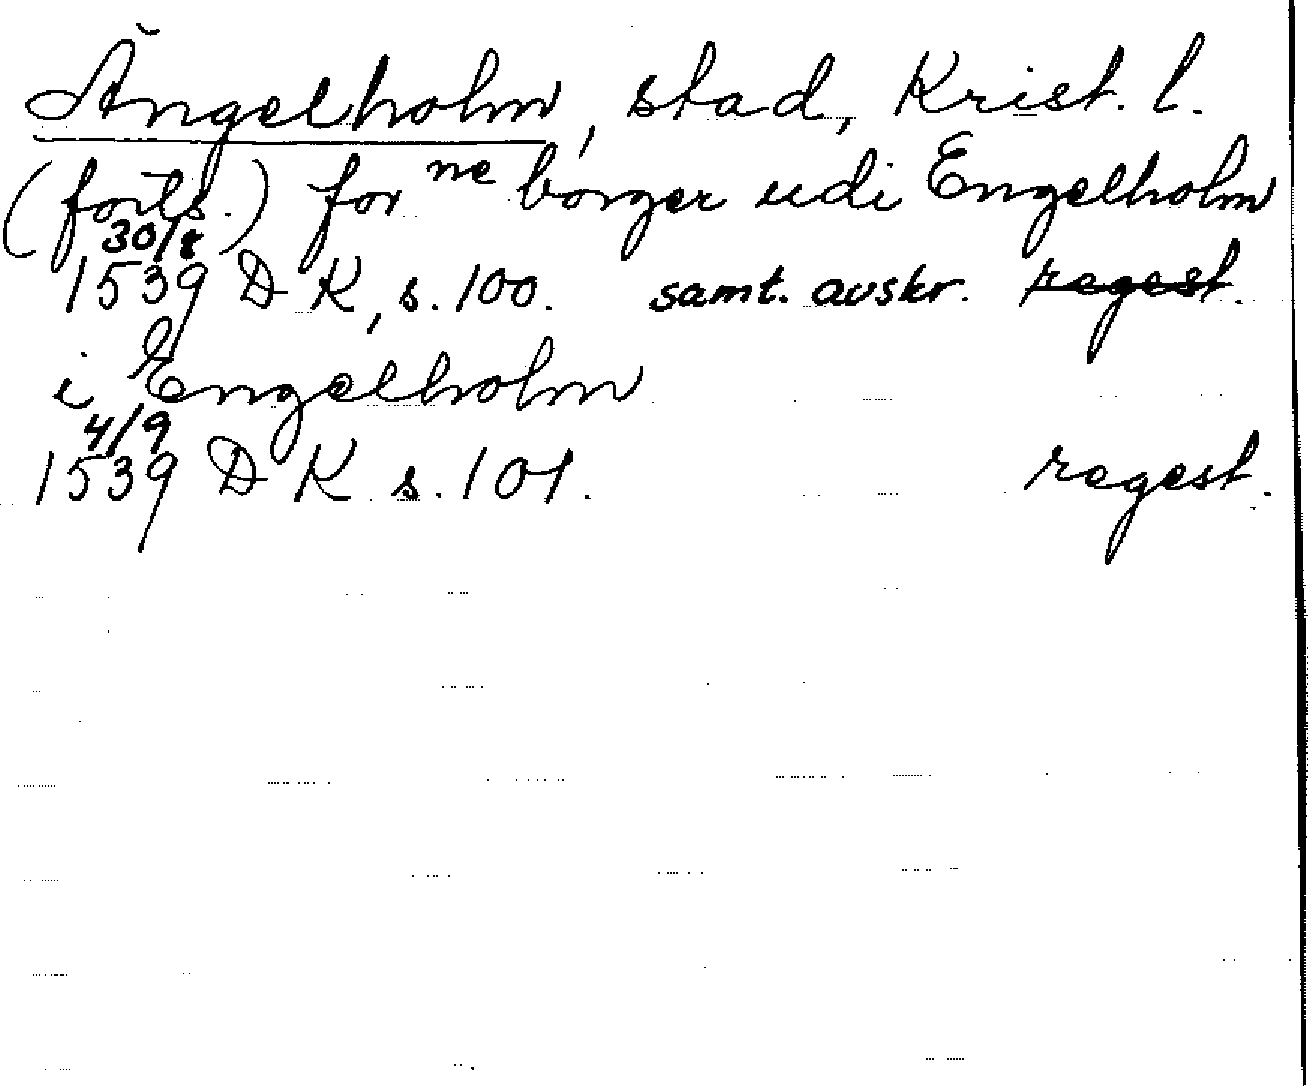 Ängelholm, stad, Krist. l.
(forts.) for ne borger udi Engelholm
30/8
1539 DK, s. 100. samt. avskr. regest.
i Engelholm
4/9
1539 DK s. 101. regest.